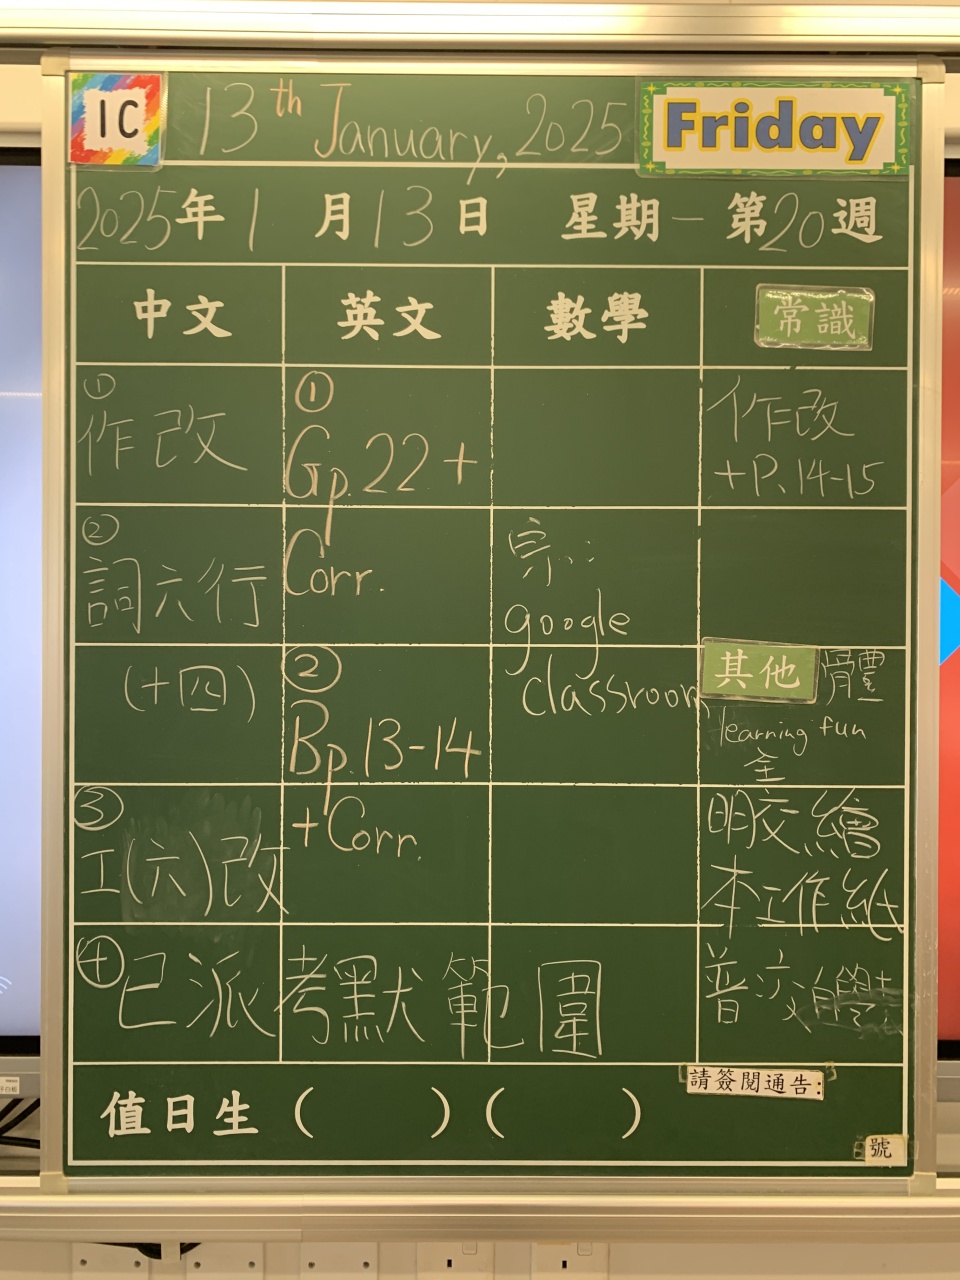 1C 13th January, 2025 Friday
2025年1月13日 星期一 第20週
中文 英文 數學 常識
①
作改
②
詞六行
(十四)
③
工(六)改
④已派考默範圍
①
Gp.22+
Corr.
②
Bp.13-14
+Corr.
google
classroom
作改
+P.14-15
其他
learning fun
明交繪
本工作紙
普
值日生 ( ) ( )
請簽閱通告:
號